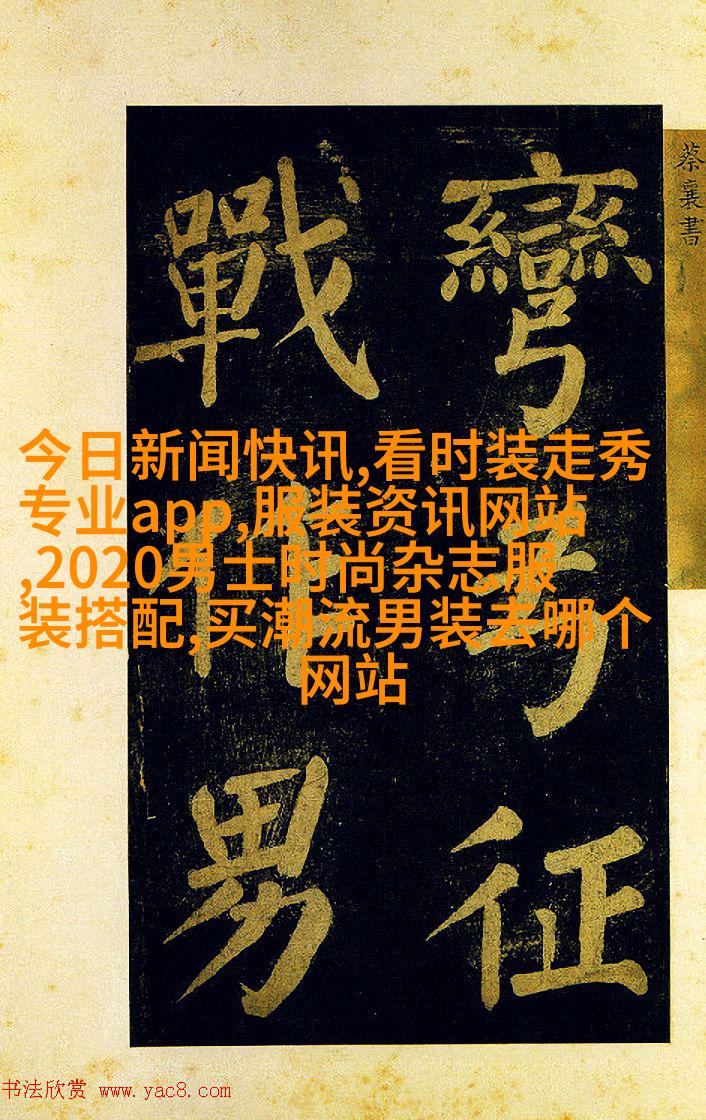 蔡襄書
彎
征
戰
男
今日新闻快讯,看时装走秀
专业app,服装资讯网站
,2020男士时尚杂志服
装搭配,买潮流男装去哪个
网站
书法欣赏 www.yac8.com